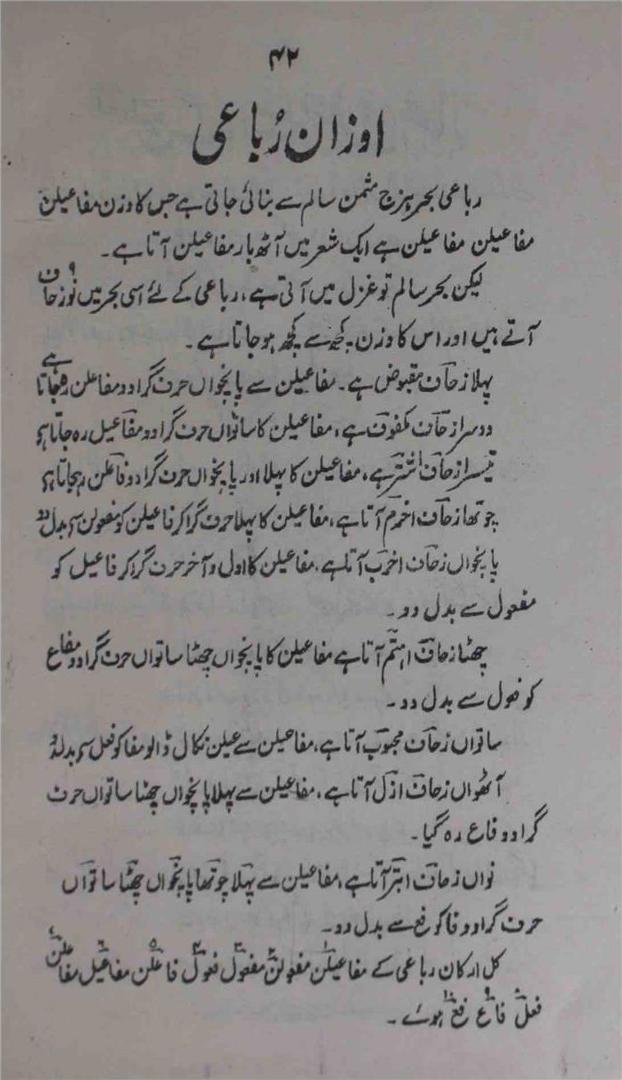 ۴۲
اوزان رُباعی
رباعی بحر ہزج مثمن سالم سے بنائی جاتی ہے جس کا وزن مفاعیلن
مفاعیلن مفاعیلن ہے ایک شعر میں آٹھ بار مفاعیلن آتا ہے۔
لیکن بحر سالم تو غزل میں آتی ہے، رباعی کے لئے اسی بحر میں نو زحاف
آتے ہیں اور اس کا وزن کچھ سے کچھ ہو جاتا ہے۔
پہلا زحاف مقبوض ہے۔ مفاعیلن سے پانچواں حرف گرا دو مفاعلن رہجاتا ہے
دوسرا زحاف مکفوف ہے، مفاعیلن کا ساتواں حرف گرا دو مفاعیل رہ جاتا ہے
تیسرا زحاف اشتر ہے، مفاعیلن کا پہلا اور پانچواں حرف گرا دو فاعلن رہجاتا ہے
چوتھا زحاف اخرم آتا ہے، مفاعیلن کا پہلا حرف گرا کر فاعیلن کو مفعولن سے بدل دو
پانچواں زحاف اخرب آتا ہے، مفاعیلن کا اول و آخر حرف گرا کر فاعیل کو
مفعول سے بدل دو۔
چھٹا زحاف اہتم آتا ہے مفاعیلن کا پانچواں چھٹا ساتواں حرف گرا دو مفاع
کو فعول سے بدل دو۔
ساتواں زحاف مجبوب آتا ہے، مفاعیلن سے عیلن نکال ڈالو مفا کو فعل سے بدلدو
آٹھواں زحاف ازل آتا ہے، مفاعیلن سے پہلا پانچواں چھٹا ساتواں حرف
گرا دو فاع رہ گیا۔
نواں زحاف ابتر آتا ہے، مفاعیلن سے پہلا چوتھا پانچواں چھٹا ساتواں
حرف گرا دو فا کو فع سے بدل دو۔
کل ارکان رباعی کے مفاعیلن مفعولن مفعول فعول فاعلن مفاعیل مفاعلن
فعل فاع فع ہوئے۔